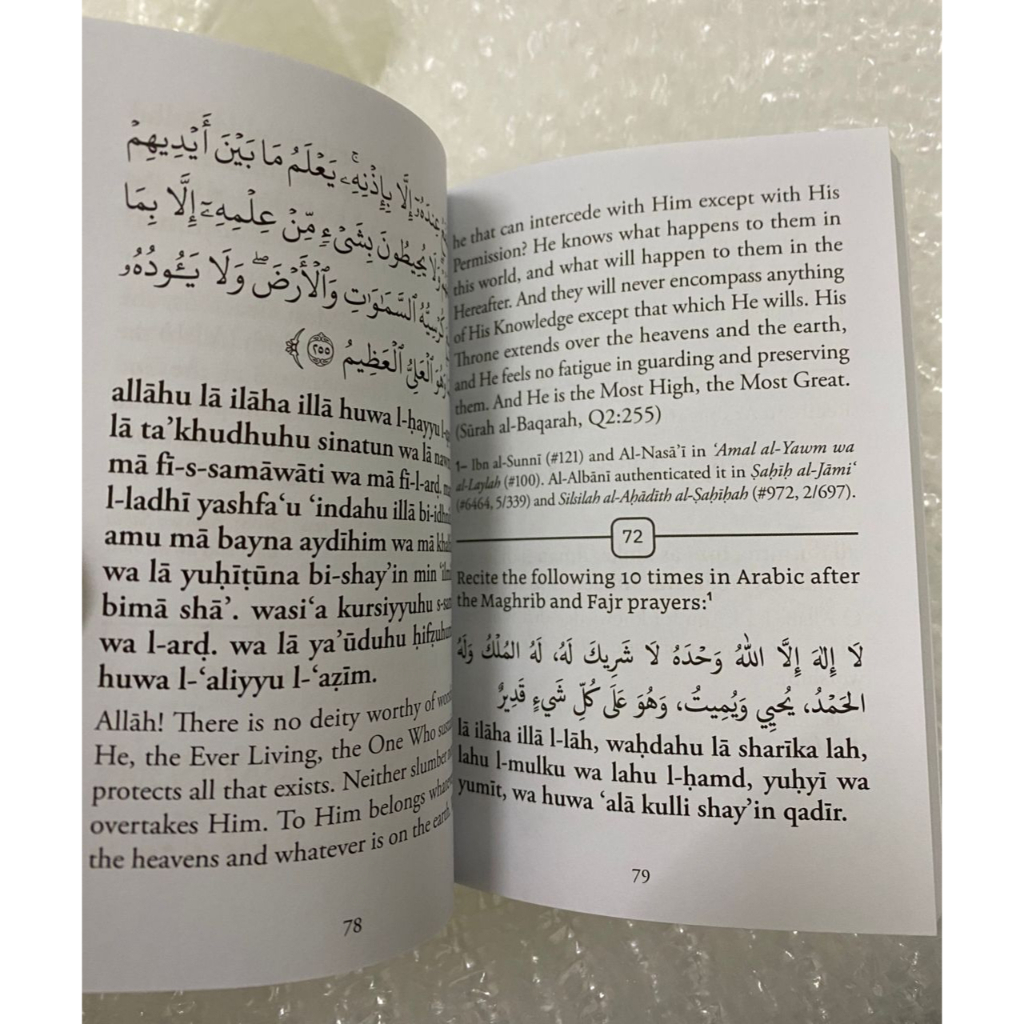 عِندَهُۥٓ إِلَّا بِإِذۡنِهِۦۚ يَعۡلَمُ مَا بَيۡنَ أَيۡدِيهِمۡ
وَلَا يُحِيطُونَ بِشَيۡءٖ مِّنۡ عِلۡمِهِۦٓ إِلَّا بِمَا
كُرۡسِيُّهُ ٱلسَّمَٰوَٰتِ وَٱلۡأَرۡضَۖ وَلَا يَـُٔودُهُۥ
وَهُوَ ٱلۡعَلِيُّ ٱلۡعَظِيمُ ٢٥٥
allāhu lā ilāha illā huwa l-ḥayyu
lā ta’khudhuhu sinatun wa lā
mā fī-s-samāwāti wa mā fī-l-arḍ,
l-ladhī yashfa‘u ‘indahu illā
amu mā bayna aydīhim wa mā
wa lā yuḥīṭūna bi-shay’in min
bimā shā’. wasi‘a kursiyyuhu
wa l-arḍ. wa lā ya’ūduhu
huwa l-‘aliyyu l-‘aẓīm.
Allāh! There is no deity worthy of
He, the Ever Living, the One Who
protects all that exists. Neither slumber
overtakes Him. To Him belongs
the heavens and whatever is on the earth.
78
he that can intercede with Him except with His
Permission? He knows what happens to them in
this world, and what will happen to them in the
Hereafter. And they will never encompass anything
of His Knowledge except that which He wills. His
Throne extends over the heavens and the earth,
and He feels no fatigue in guarding and preserving
them. And He is the Most High, the Most Great.
(Sūrah al-Baqarah, Q2:255)
1– Ibn al-Sunnī (#121) and Al-Nasā’ī in ‘Amal al-Yawm wa
al-Laylah (#100). Al-Albānī authenticated it in Ṣaḥīḥ al-Jāmi‘
(#6464, 5/339) and Silsilah al-Aḥādīth al-Ṣaḥīḥah (#972, 2/697).
72
Recite the following 10 times in Arabic after
the Maghrib and Fajr prayers:¹
لَا إِلٰهَ إِلَّا اللّٰهُ وَحْدَهُ لَا شَرِيكَ لَهُ، لَهُ المُلْكُ وَلَهُ
الحَمْدُ، يُحْيِي وَيُمِيتُ، وَهُوَ عَلَى كُلِّ شَيْءٍ قَدِيرٌ
lā ilāha illā l-lāh, waḥdahu lā sharīka lah,
lahu l-mulku wa lahu l-ḥamd, yuḥyī wa
yumīt, wa huwa ‘alā kulli shay’in qadīr.
79